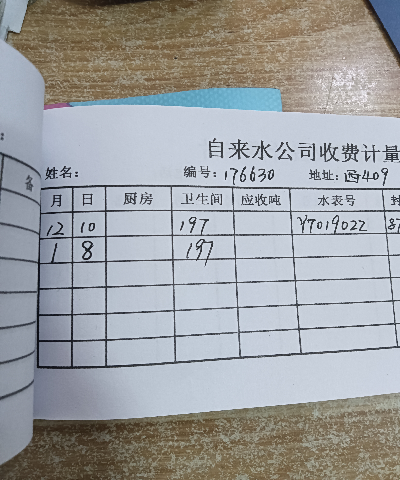 自来水公司收费计量
姓名: 编号: 176630 地址: 西409
备
月 日 厨房 卫生间 应收吨 水表号 封
12 10 197 Y7019022 87
1 8 197